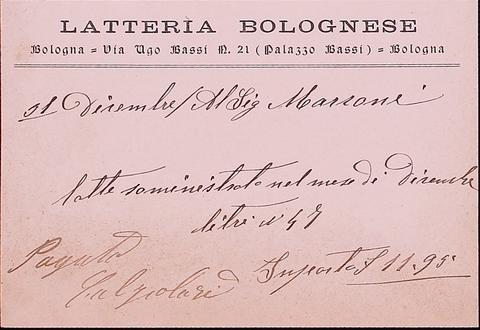 LATTERIA BOLOGNESE
Bologna = Via Ugo Bassi N. 21 (Palazzo Bassi) = Bologna
31 Dicembre / Al Sig Marsoni
latte somministrato nel mese di Dicembre
litri N 47
Pagato
Importo £ 11.95
Calzolari